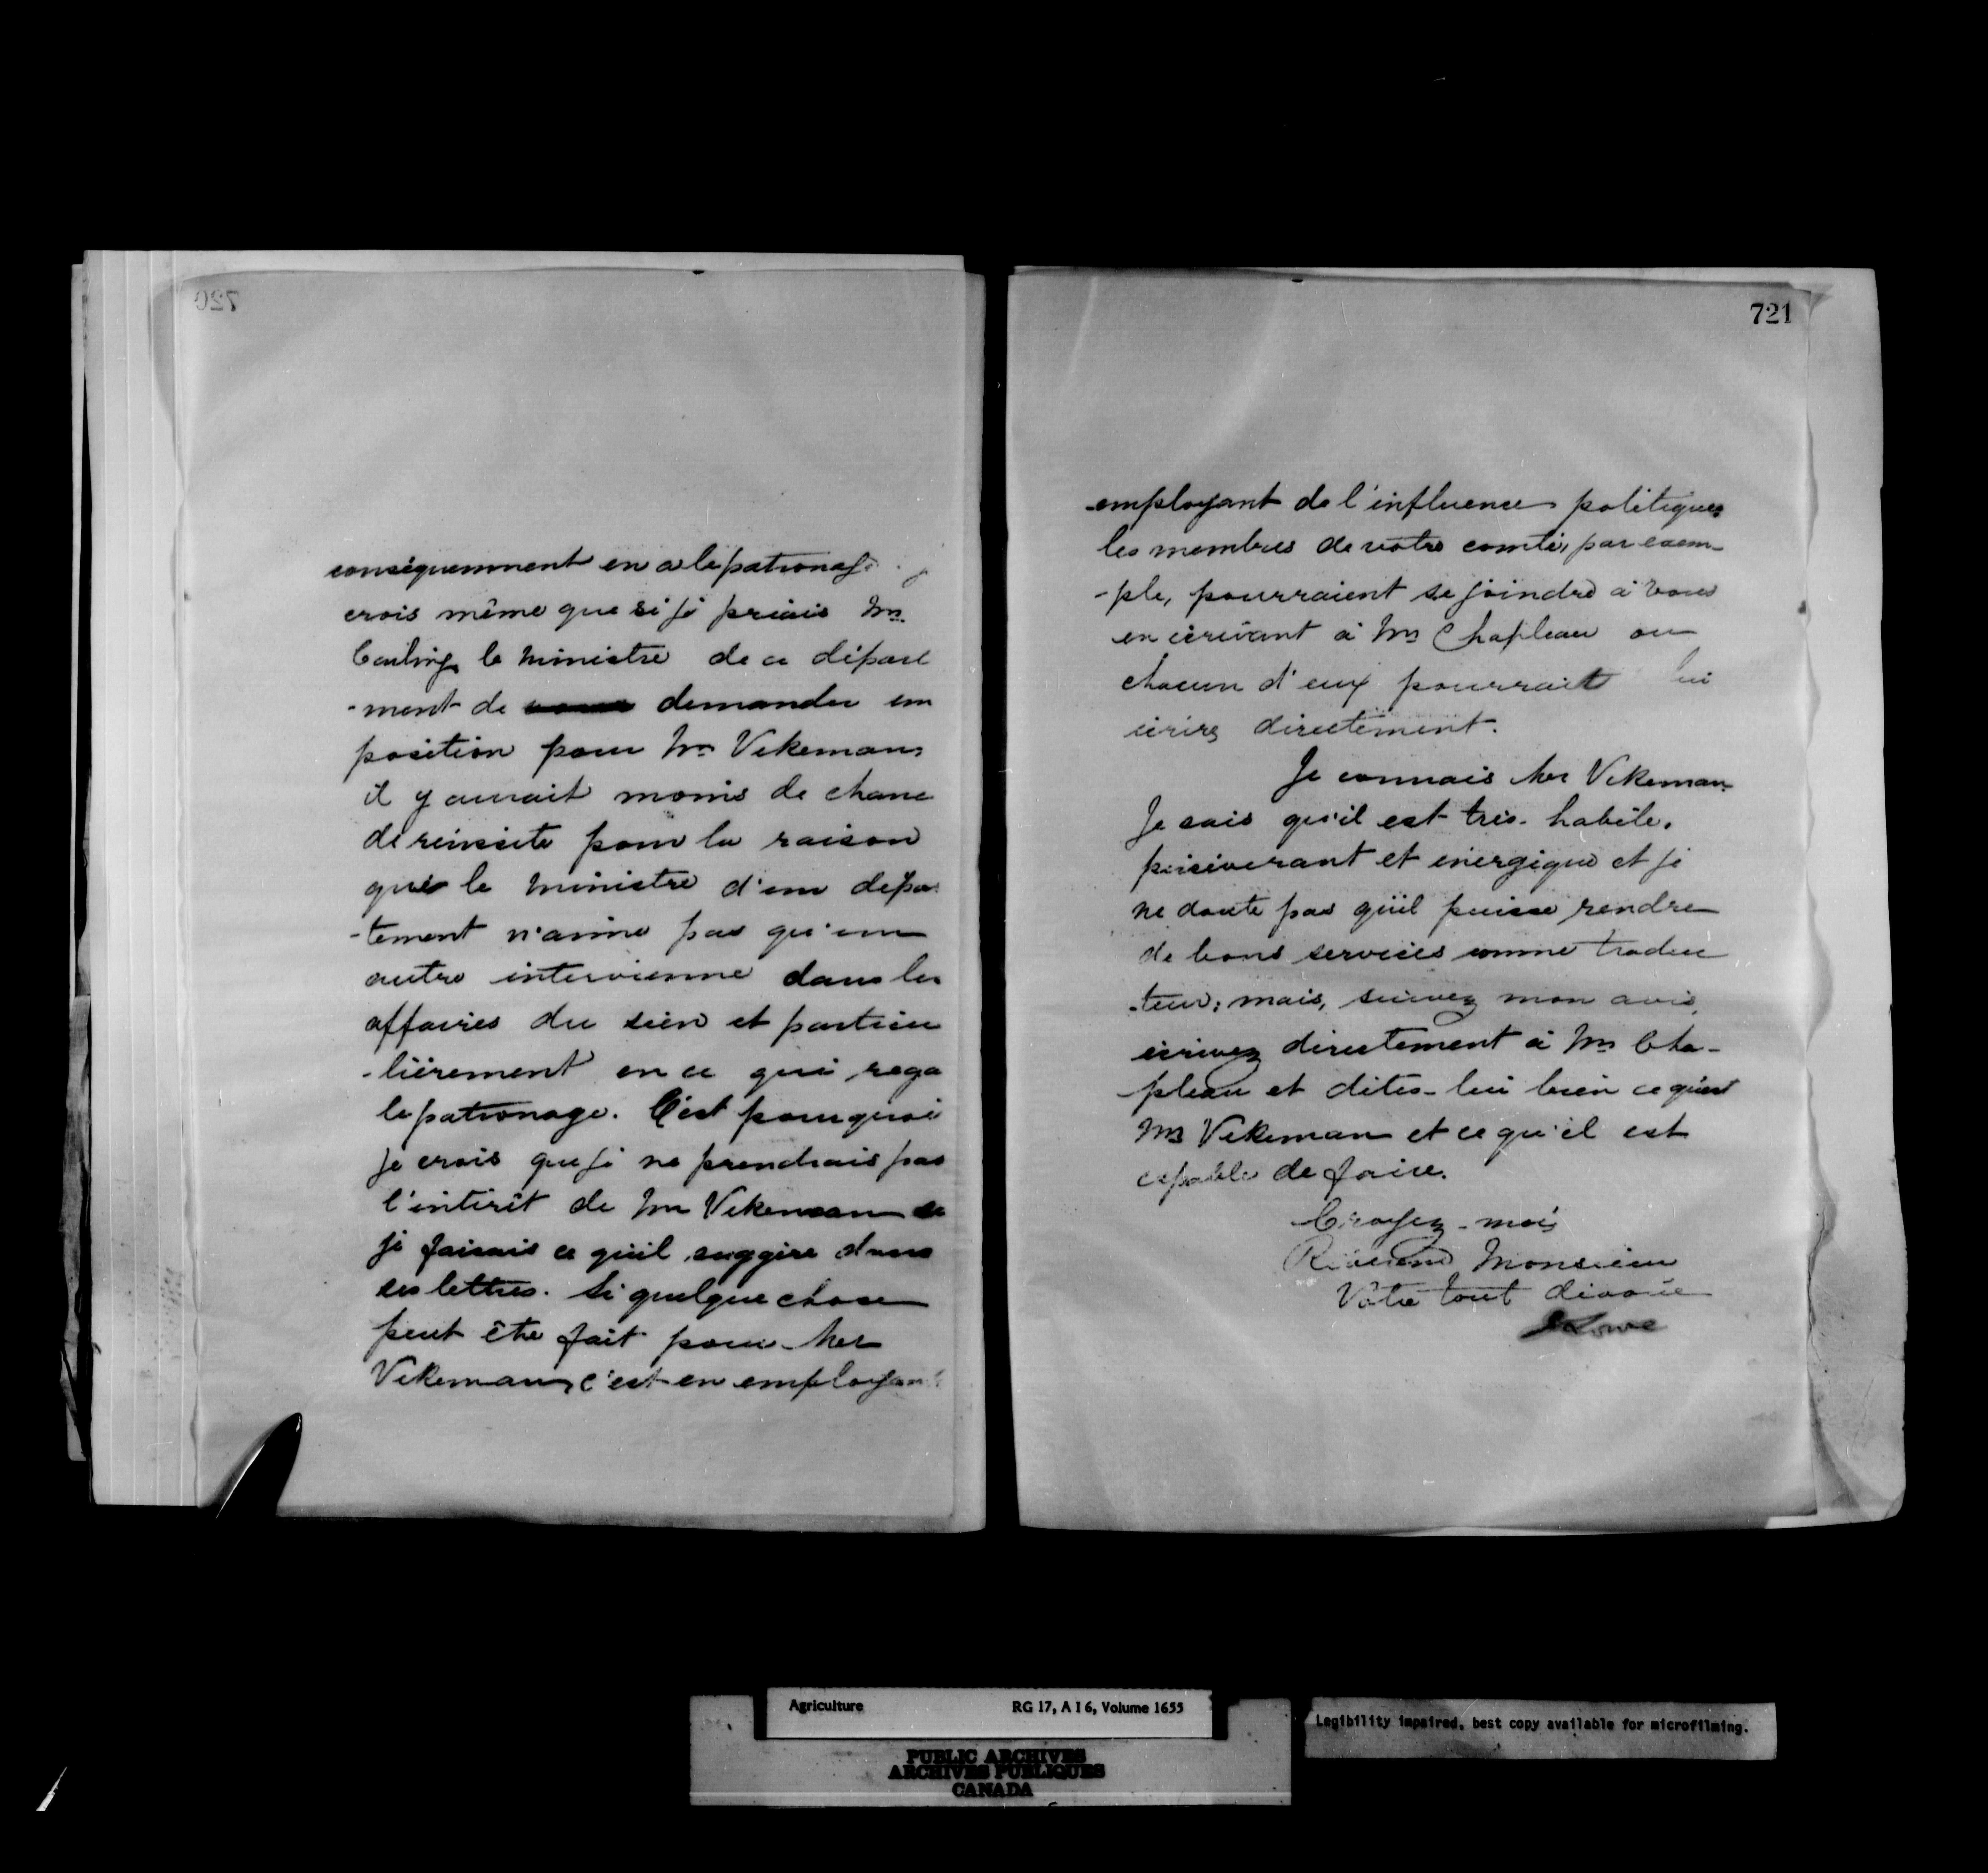 720
conséquemment en a le patronage
crois même que si je priais Mr.
Carling le ministre de ce départ
-ment de demander un
position pour Mr Vekeman,
il y aurait moins de chanc
de réussite pour la raison
que le ministre d'un dépar
-tement n'aime pas qu'un
autre intervienne dans les
affaires du sien et particu
-lièrement en ce qui rega
le patronage. C'est pourquoi
je crois que je ne prendrais pas
l'intérêt de Mr Vekeman si
je faisais ce qu'il suggère dans
ses lettres. Si quelque chose
peut être fait pour Mr
Vekeman, c'est en employant
721
employant de l'influence politique
les membres de votre comté, par exem-
-ple, pourraient se joindre à vous
en écrivant à Mr Chapleau ou
chacun d'eux pourrait lui
écrire directement.
Je connais Mr Vekeman
Je sais qu'il est très-habile,
persévérant et énergique et je
ne doute pas qu'il puisse rendre
de bons services comme traduc
-teur; mais, suivez mon avis,
écrivez directement à Mr Cha-
pleau et dites-lui bien ce qu'est
Mr Vekeman et ce qu'il est
capable de faire.
Croyez-moi,
Révérend Monsieur
Votre tout dévoué
Lowe
Agriculture RG 17, A I 6, Volume 1655
PUBLIC ARCHIVES
ARCHIVES PUBLIQUES
CANADA
Legibility impaired, best copy available for microfilming.